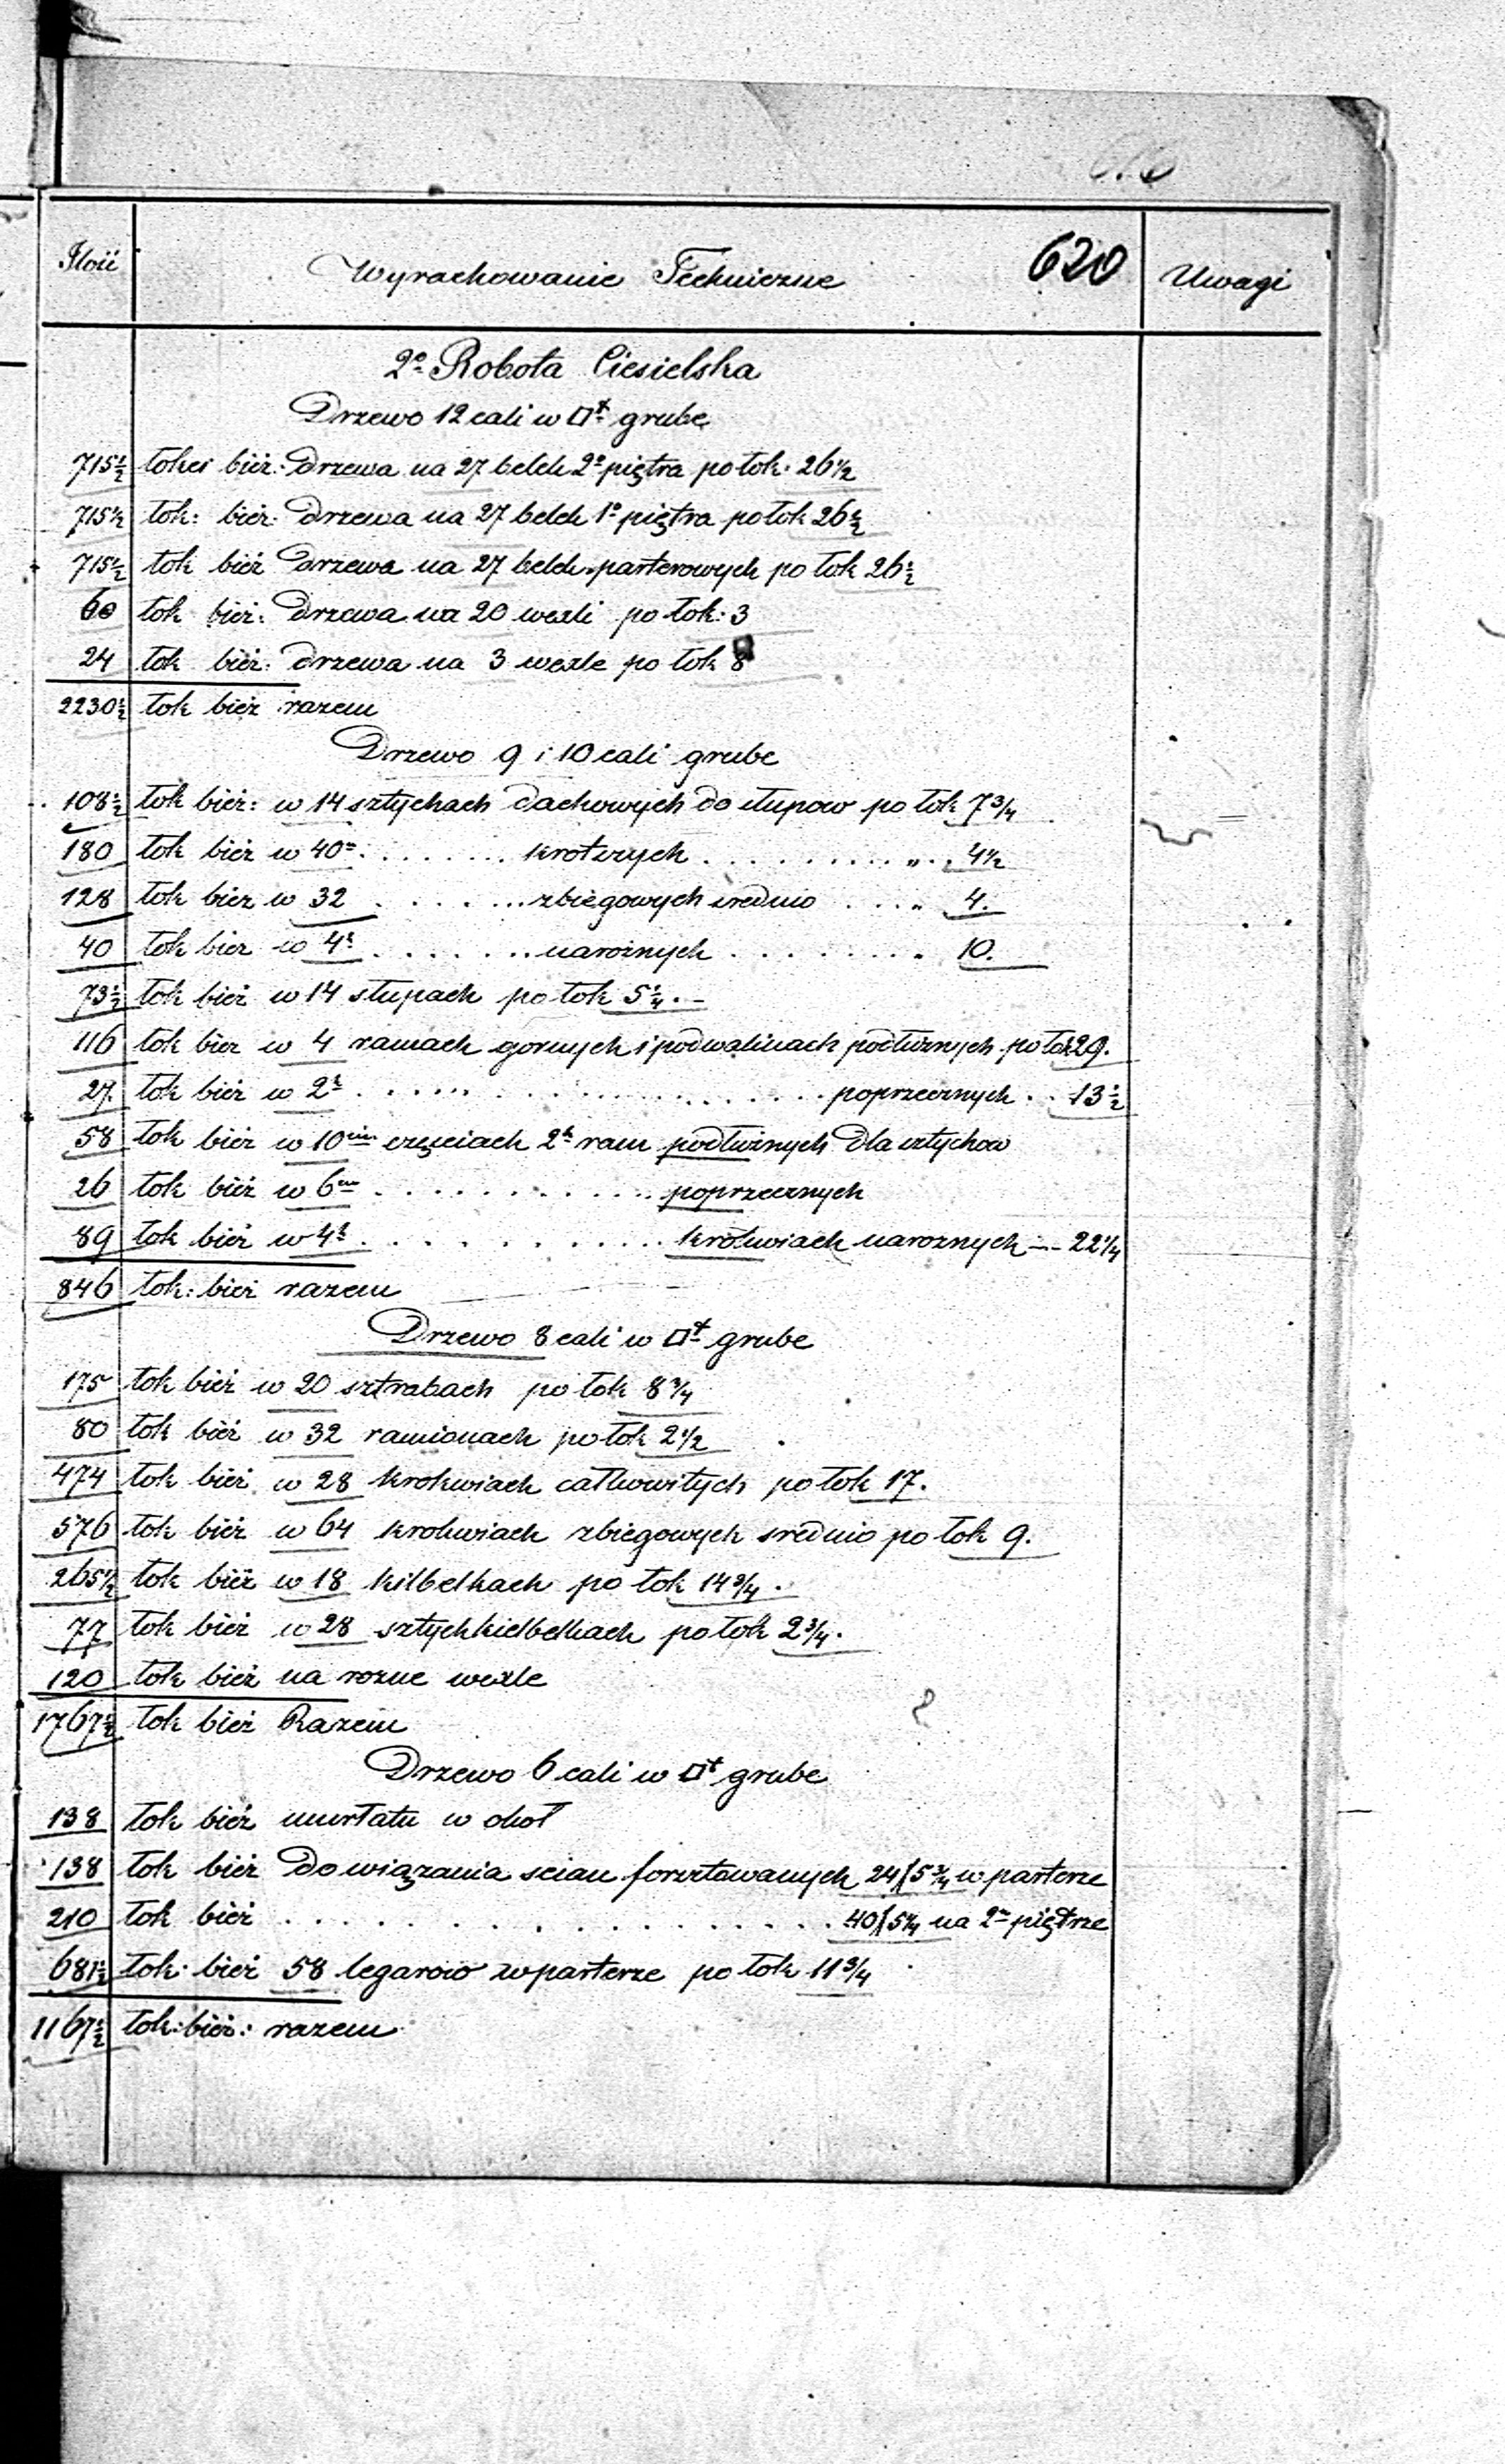 Ilość Wyrachowanie Techniczne 620 Uwagi
2º Robota Ciesielska
Drzewo 12 cali w □t grube
715½ łokci bież: drzewa na 27 belek 2º piętra po łok: 26½
715½ łok: bież: drzewa na 27 belek 1º piętra po łok 26½
715½ łok bież drzewa na 27 belek parterowych po łok 26½
60 łok bież: drzewa na 20 wexli po łok: 3
24 łok bież: drzewa na 3 wexle po łok 8
2230½ łok bież razem
Drzewo 9 i 10 cali grube
108½ łok bież: w 14 sztychach dachowych do słupow po łok 7¾
180 łok bież w 40 . . . . . . . krotszych . . . . . . . . . „ . . 4½
128 łok bież w 32 . . . . . . . zbiegowych srednio . . . . „ 4.
40 łok bież w 4ch . . . . . . . narożnych . . . . . . . . „ 10.
73½ łok bież w 14 słupach po łok 5¼ . –
116 łok bież w 4 ramach gornych i podwalinach podłużnych po łok 29.
27 łok bież w 2ch . . . . . . . . . . . . . . . . . . poprzecznych . . 13½
58 łok bież w 10ciu częsciach 2ch ram podłużnych dla sztychow
26 łok bież w 6ciu . . . . . . . . . . . . poprzecznych
89 łok bież w 4ch . . . . . . . . . . . . krokwiach narożnych – . – 22¼
846 łok: bież razem
Drzewo 8 cali w □t grube
175 łok bież w 20 sztrabach po łok 8¾
80 łok bież w 32 ramionach po łok 2½
474 łok bież w 28 krokwiach całkowitych po łok 17.
576 łok bież w 64 krokwiach zbiegowych srednio po łok 9.
265½ łok bież w 18 kilbelkach po łok 14¾ .
77 łok bież w 28 sztychkielbelkach po łok 2¾.
120 łok bież na rozne wexle
1767½ łok bież Razem
Drzewo 6 cali w □t grube
138 łok bież murłatu w okoł
138 łok bież Do wiązania scian forsztowanych 24/5¾ w parterze
210 łok bież . . . . . . . . . . . . . . . . . . 40/5¼ na 2m piętrze
681½ łok: bież 58 legarow w parterze po łok 11¾
1167½ łok: bież: razem